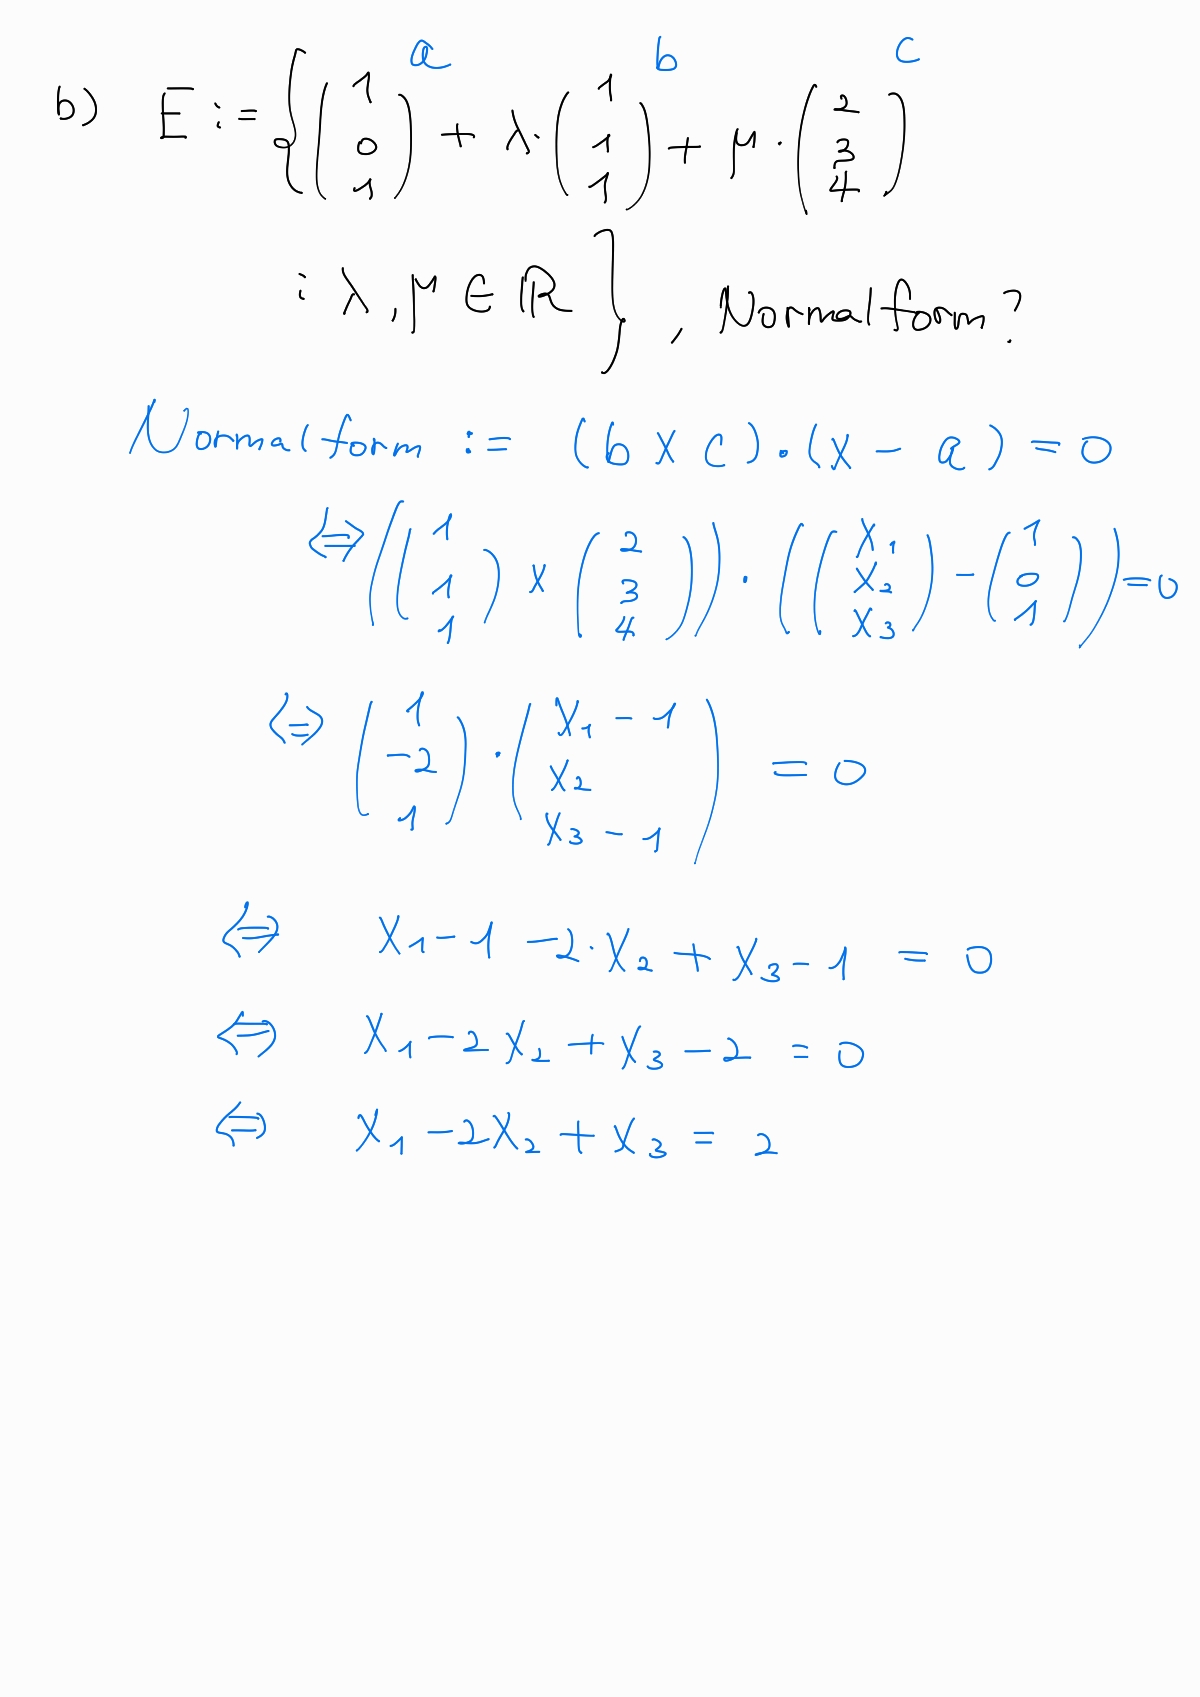 a b c
b) E := { (1 0 1) + λ · (1 1 1) + μ · (2 3 4)
: λ, μ ∈ ℝ } , Normalform?
Normalform := (b × c) · (x − a) = 0
⇔ ((1 1 1) × (2 3 4)) · ((x₁ x₂ x₃) − (1 0 1)) = 0
⇔ (1 −2 1) · (x₁ − 1 x₂ x₃ − 1) = 0
⇔ x₁ − 1 − 2 · x₂ + x₃ − 1 = 0
⇔ x₁ − 2x₂ + x₃ − 2 = 0
⇔ x₁ − 2x₂ + x₃ = 2